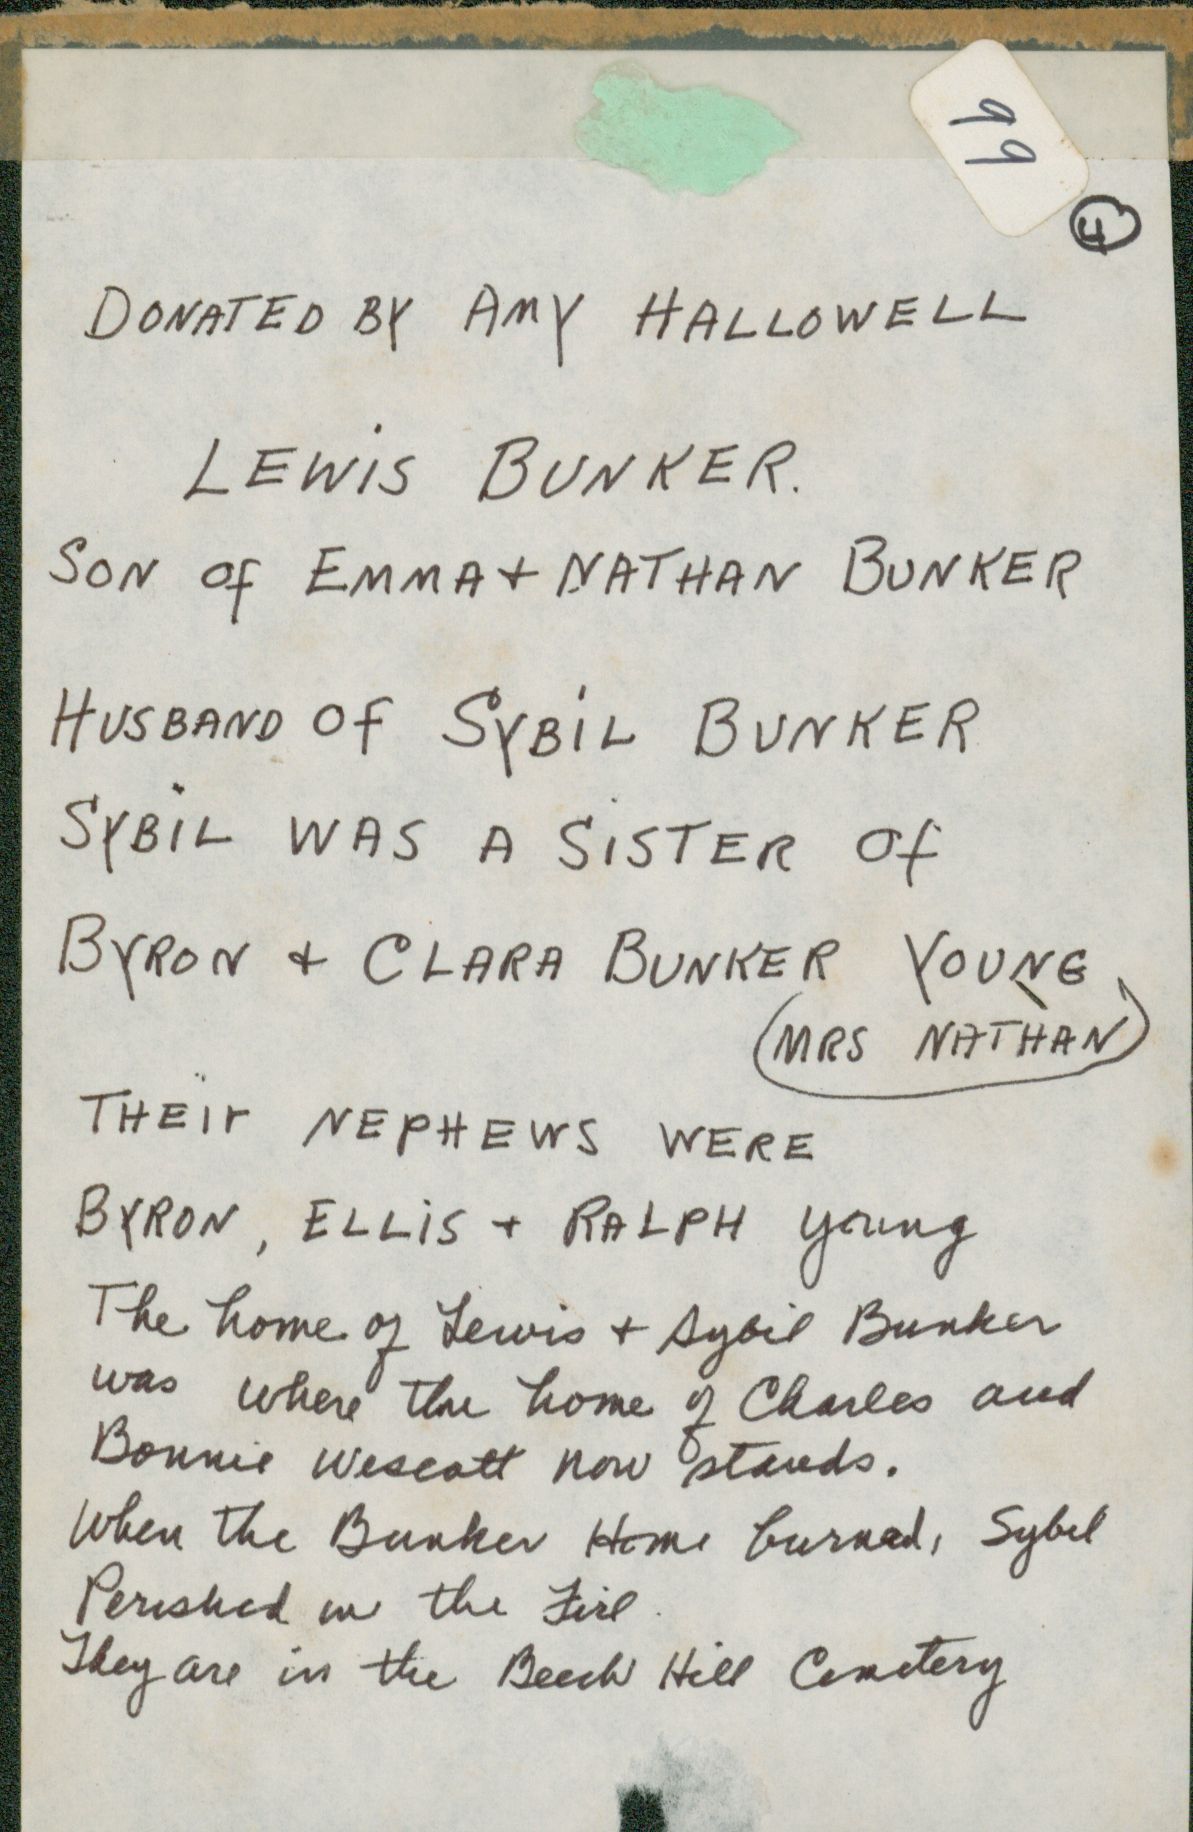 99
4
DONATED BY AMY HALLOWELL
LEWIS BUNKER.
SON of EMMA + NATHAN BUNKER
HUSBAND Of SYBIL BUNKER
SYBIL WAS A SISTER Of
BYRON + CLARA BUNKER YOUNG
(MRS NATHAN)
THEIr NEPHEWS WERE
BYRON, ELLIS + RALPH Young
The home of Lewis + Sybil Bunker
was where the home of Charles and
Bonnie Wescott now stands.
When the Bunker Home burned, Sybil
Perished in the Fire.
They are in the Beech Hill Cemetery